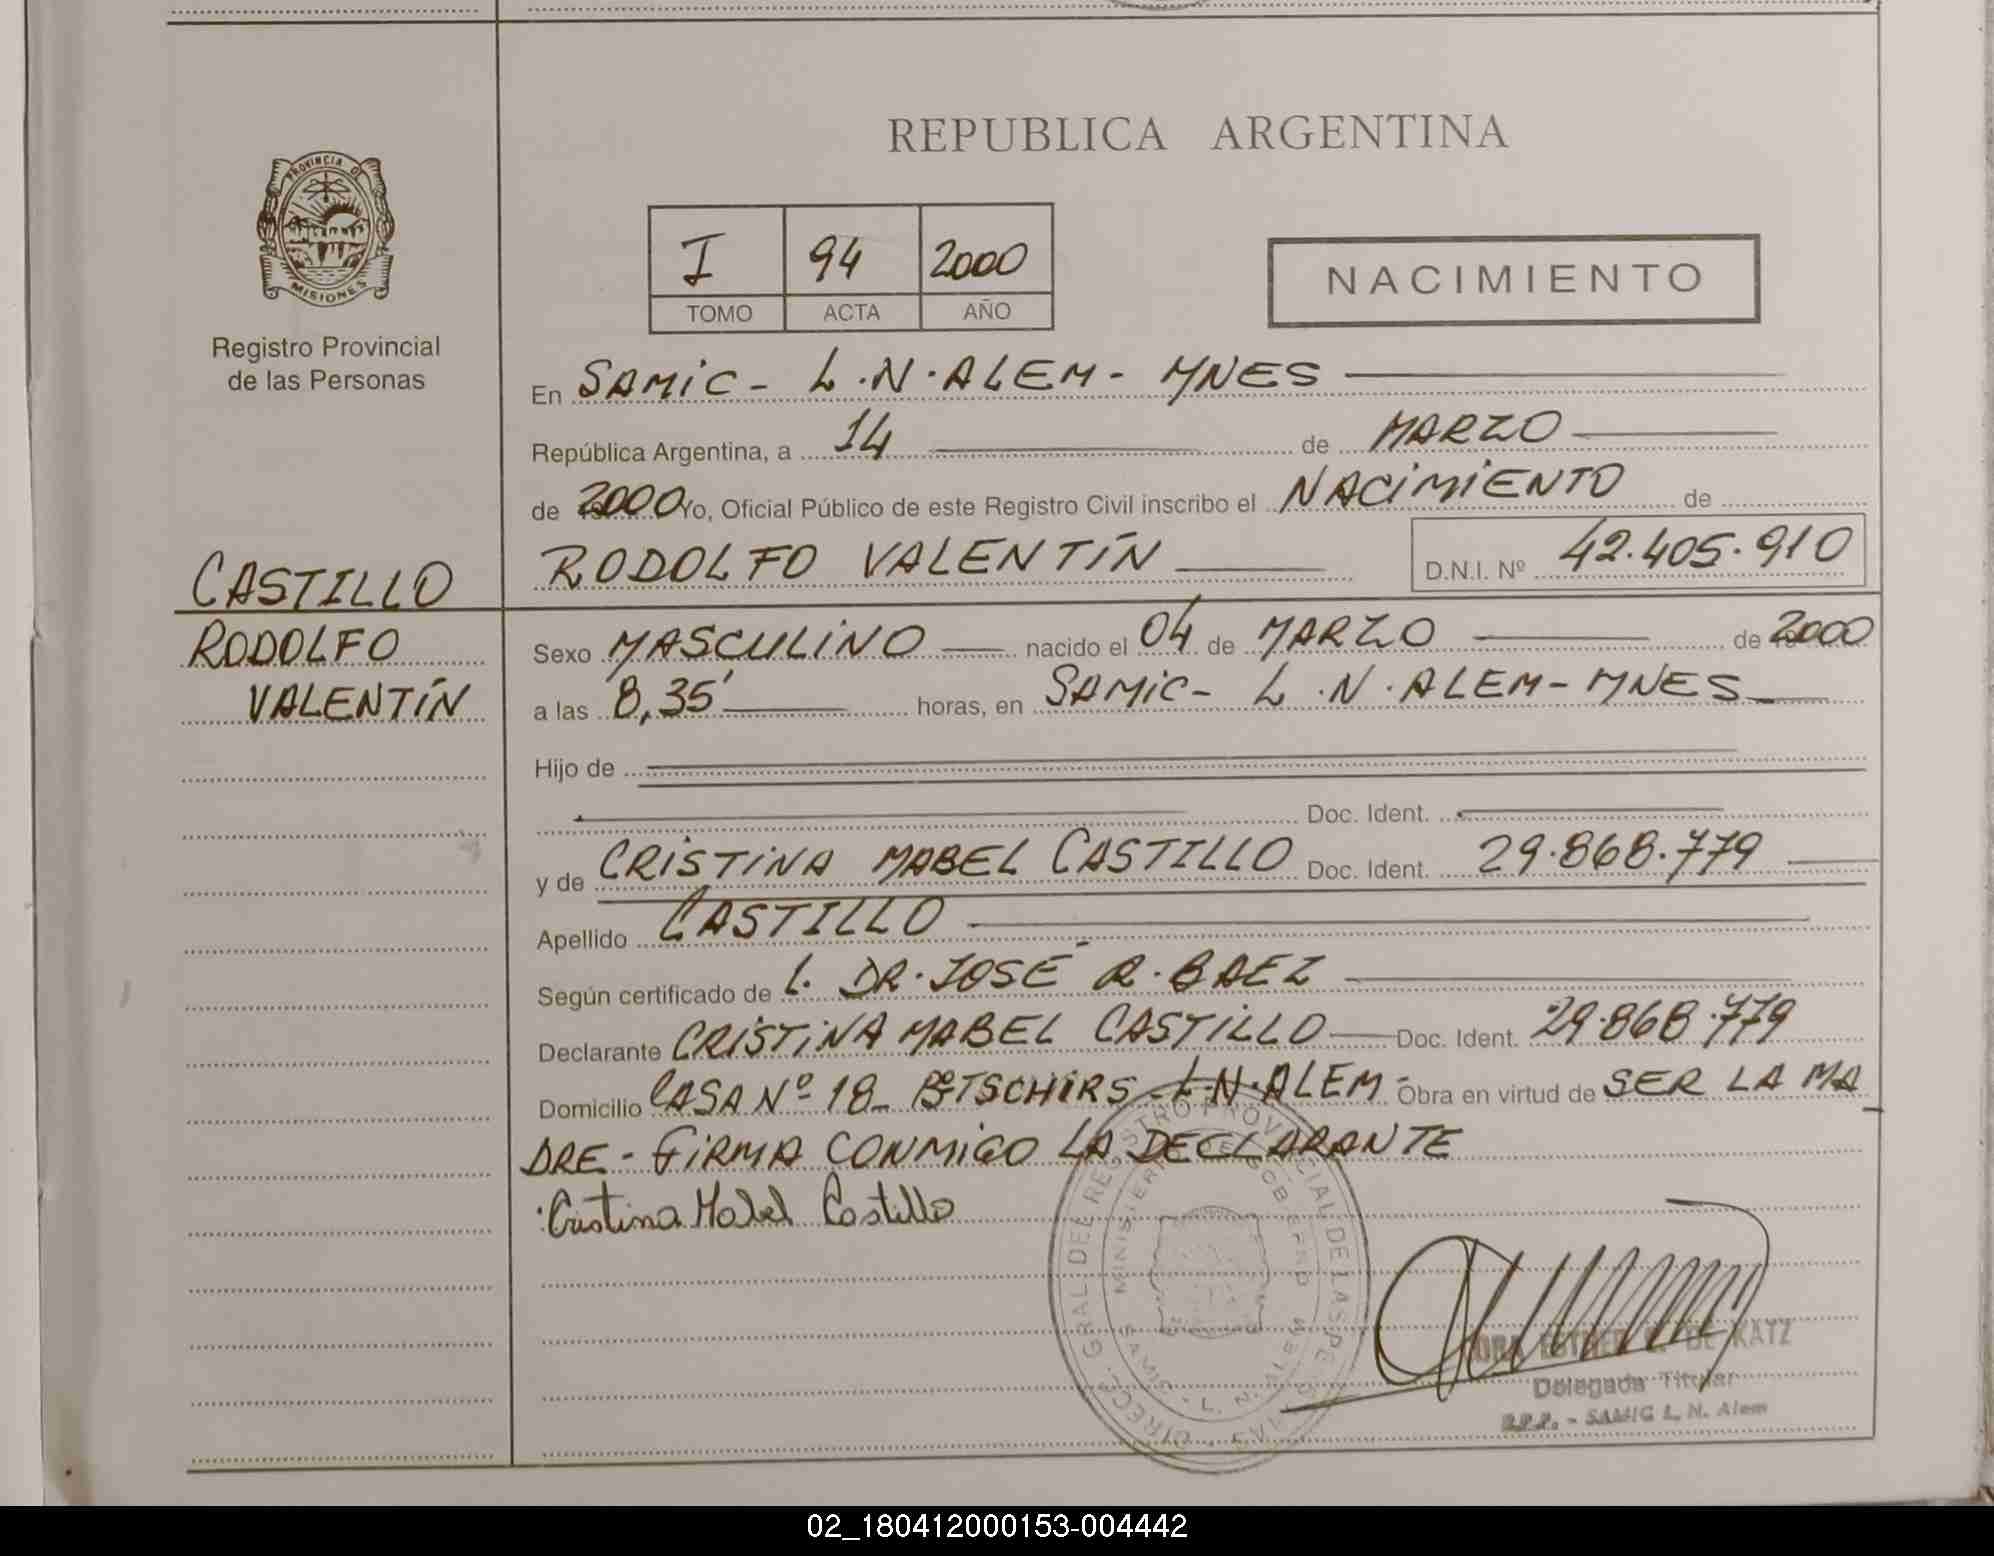 REPUBLICA ARGENTINA
PROVINCIA DE
MISIONES
Registro Provincial
de las Personas
I 94 2000
TOMO ACTA AÑO
NACIMIENTO
En SAMIC - L.N.ALEM - MNES
República Argentina, a 14 de MARZO
de 2000 Yo, Oficial Público de este Registro Civil inscribo el NACIMIENTO de
RODOLFO VALENTÍN D.N.I. Nº 42.405.910
CASTILLO
RODOLFO
VALENTÍN
Sexo MASCULINO nacido el 04 de MARZO de 2000
a las 8,35' horas, en SAMIC - L.N.ALEM - MNES
Hijo de
Doc. Ident.
y de CRISTINA MABEL CASTILLO Doc. Ident. 29.868.779
Apellido CASTILLO
Según certificado de L. DR. JOSÉ R. BAEZ
Declarante CRISTINA MABEL CASTILLO Doc. Ident. 29.868.779
Domicilio CASA Nº 18 Bº TSCHIRS - L.N.ALEM - Obra en virtud de SER LA MA
DRE - FIRMA CONMIGO LA DECLARANTE
Cristina Mabel Castillo
DIREC. GRAL. DEL REGISTRO PROVINCIAL DE LAS PERSONAS
MINISTERIO DE GOBIERNO
SAMIC - L. N. ALEM
DE KATZ
Delegada Titular
R.P.P. - SAMIC L. N. Alem
02_180412000153-004442